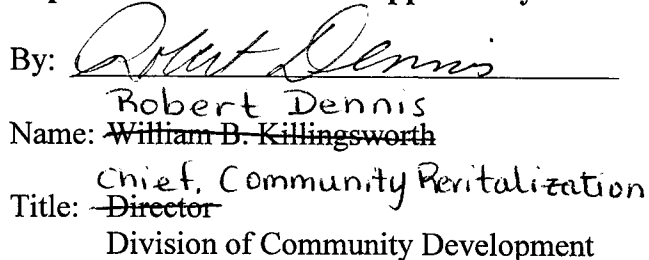 By: Robert Dennis
Robert Dennis
Name: William B. Killingsworth
Chief, Community Revitalization
Title: Director
Division of Community Development